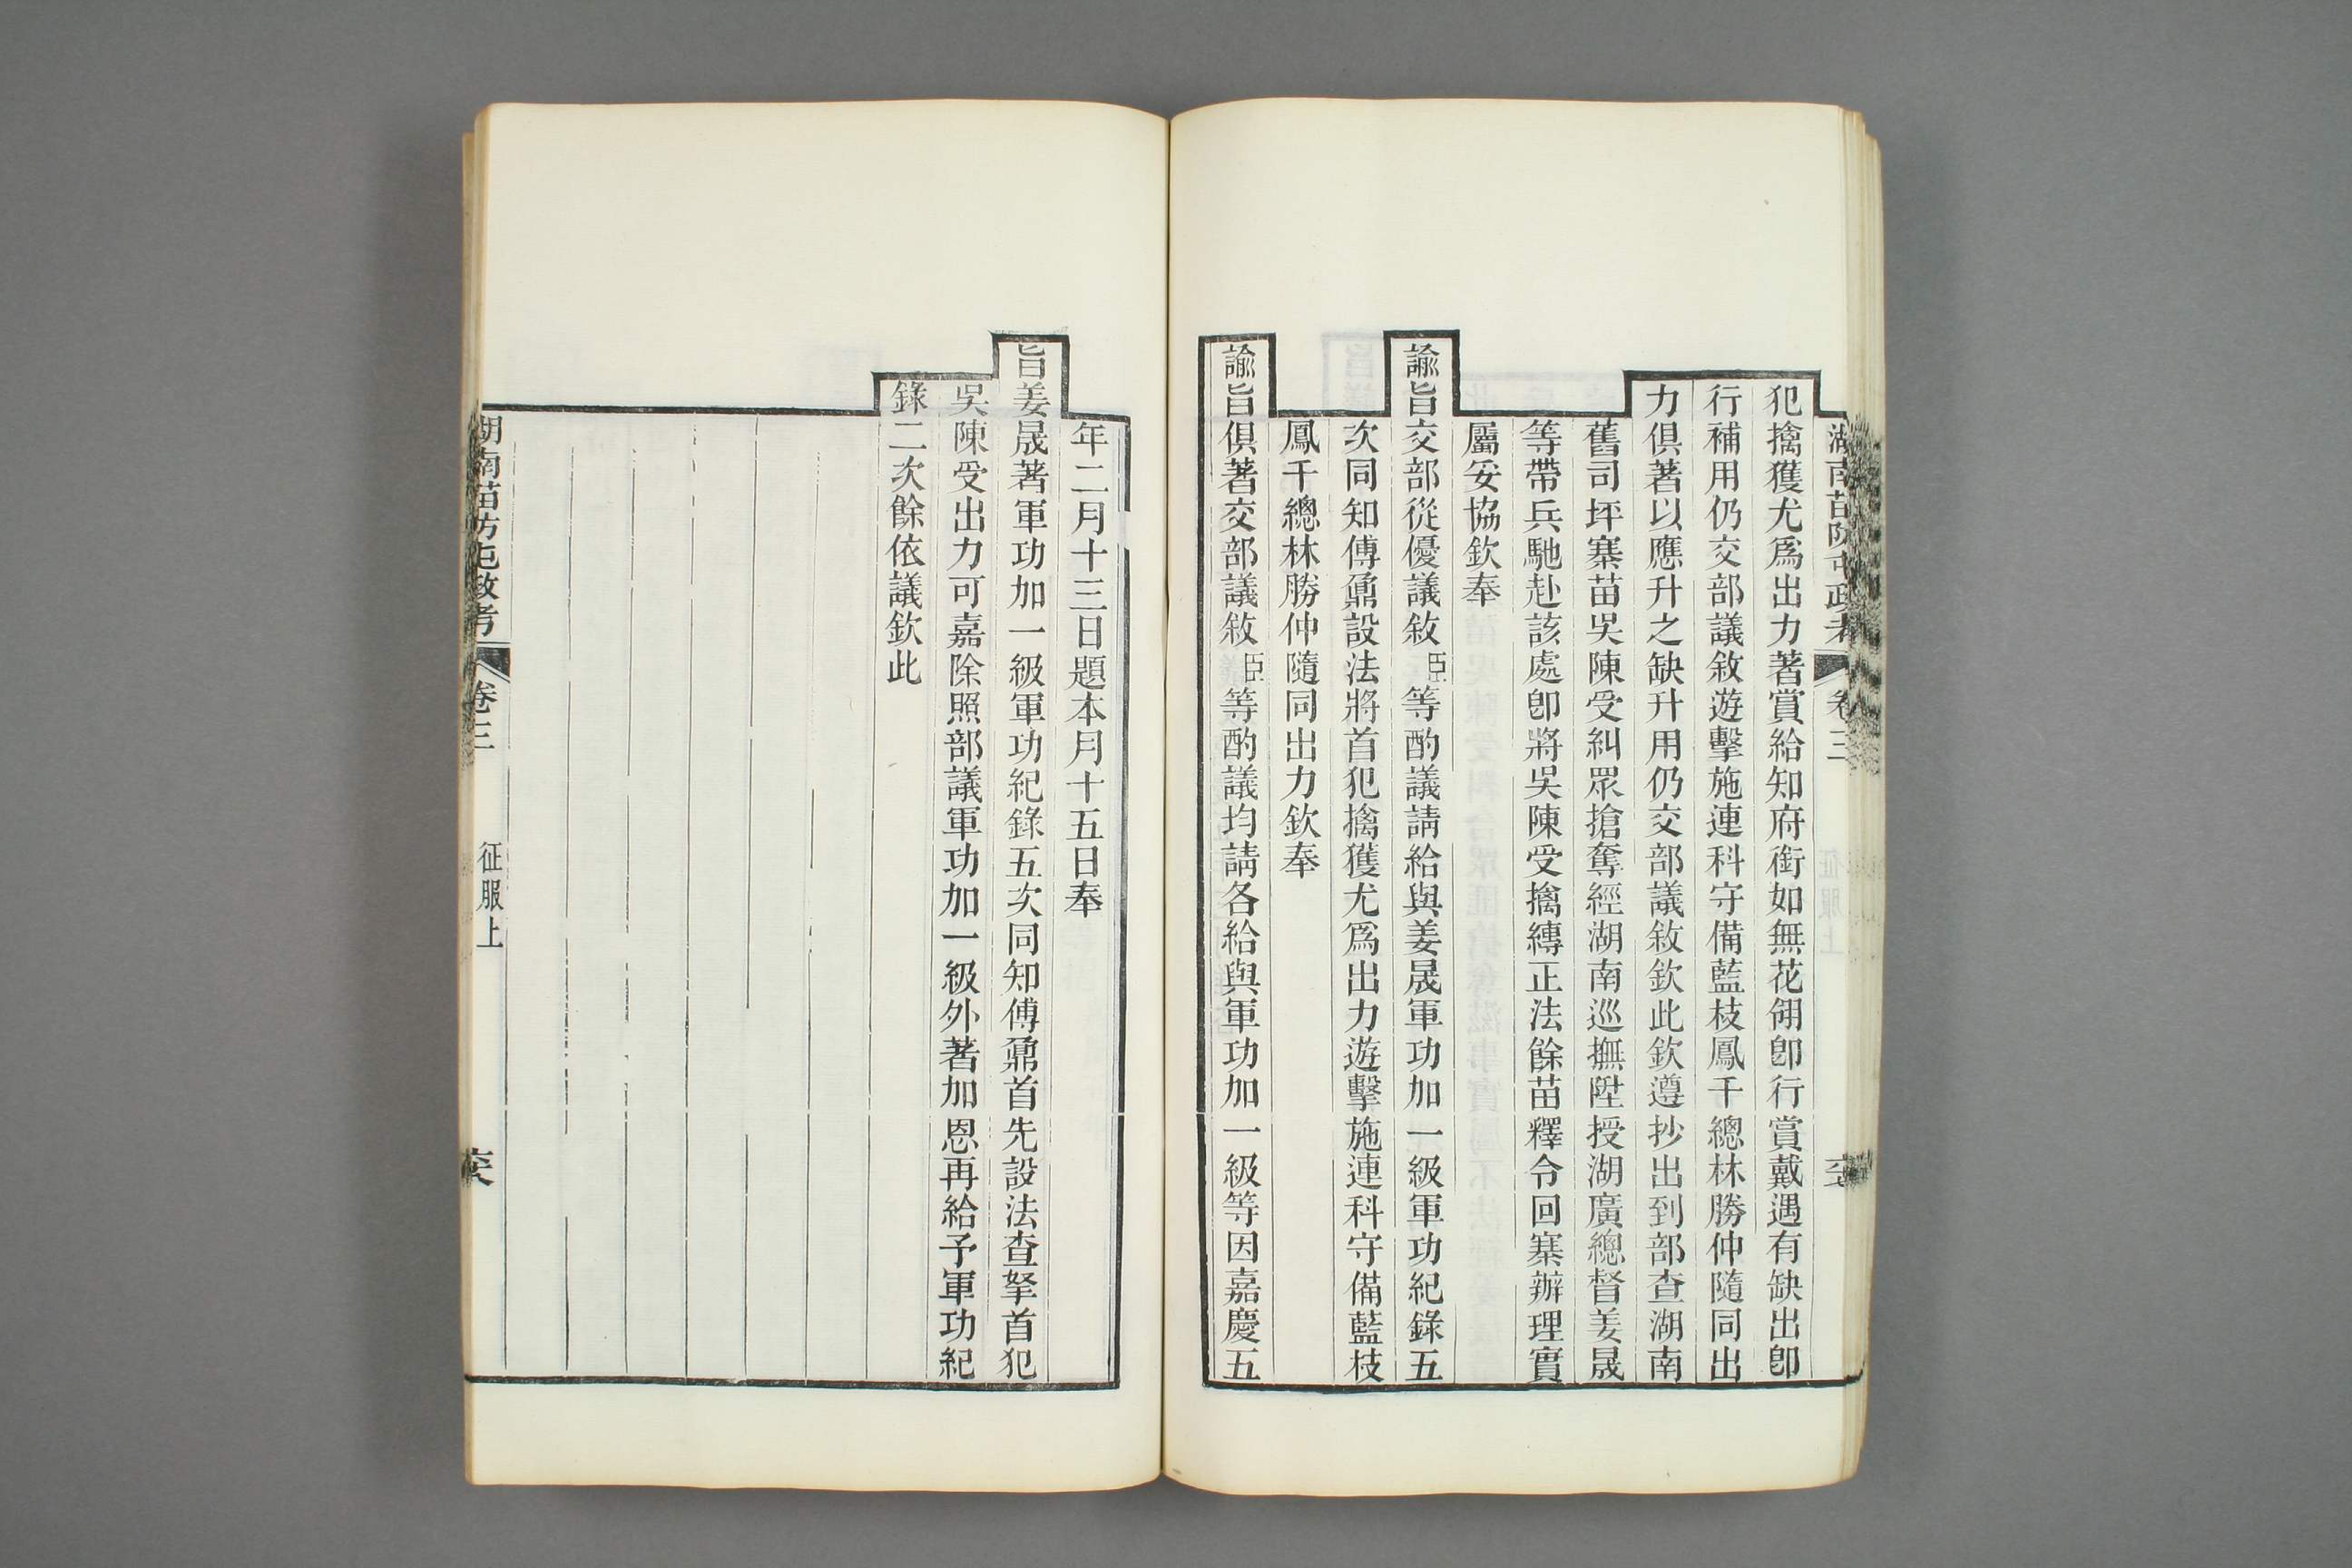 湖南苗防屯政考
卷三
犯擒獲尤爲出力著賞給知府銜如無花翎卽行賞戴遇有缺出卽
行補用仍交部議敘遊擊施連科守備藍枝鳳千總林勝仲隨同出
力俱著以應升之缺升用仍交部議敘欽此欽遵抄出到部查湖南
舊司坪寨苗吳陳受糾眾搶奪經湖南巡撫陞授湖廣總督姜晟
等帶兵馳赴該處卽將吳陳受擒縛正法餘苗釋令回寨辦理實
屬妥協欽奉
諭旨交部從優議敘臣等酌議請給與姜晟軍功加一級軍功紀錄五
次同知傅鼐設法將首犯擒獲尤爲出力遊擊施連科守備藍枝
鳳千總林勝仲隨同出力欽奉
諭旨俱著交部議敘臣等酌議均請各給與軍功加一級等因嘉慶五
年二月十三日題本月十五日奉
旨姜晟著軍功加一級軍功紀錄五次同知傅鼐首先設法查拏首犯
吳陳受出力可嘉除照部議軍功加一級外著加恩再給予軍功紀
錄二次餘依議欽此
湖南苗防屯政考
卷三
征服上